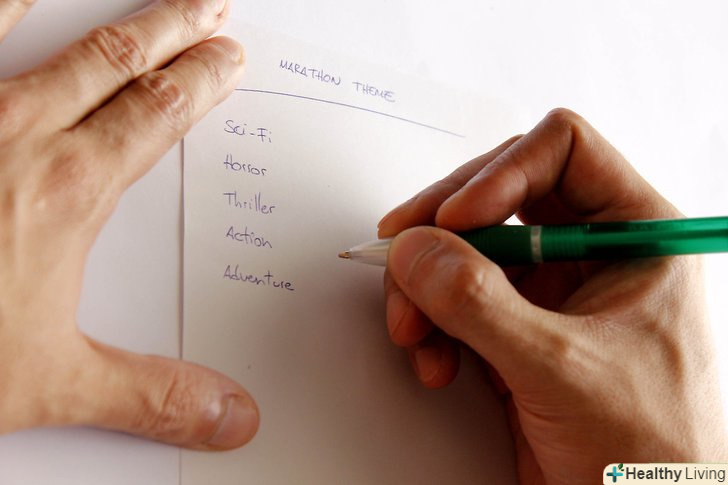 MARATHON THEME
Sci-Fi
Horror
Thriller
Action
Adventure
Healthy Living